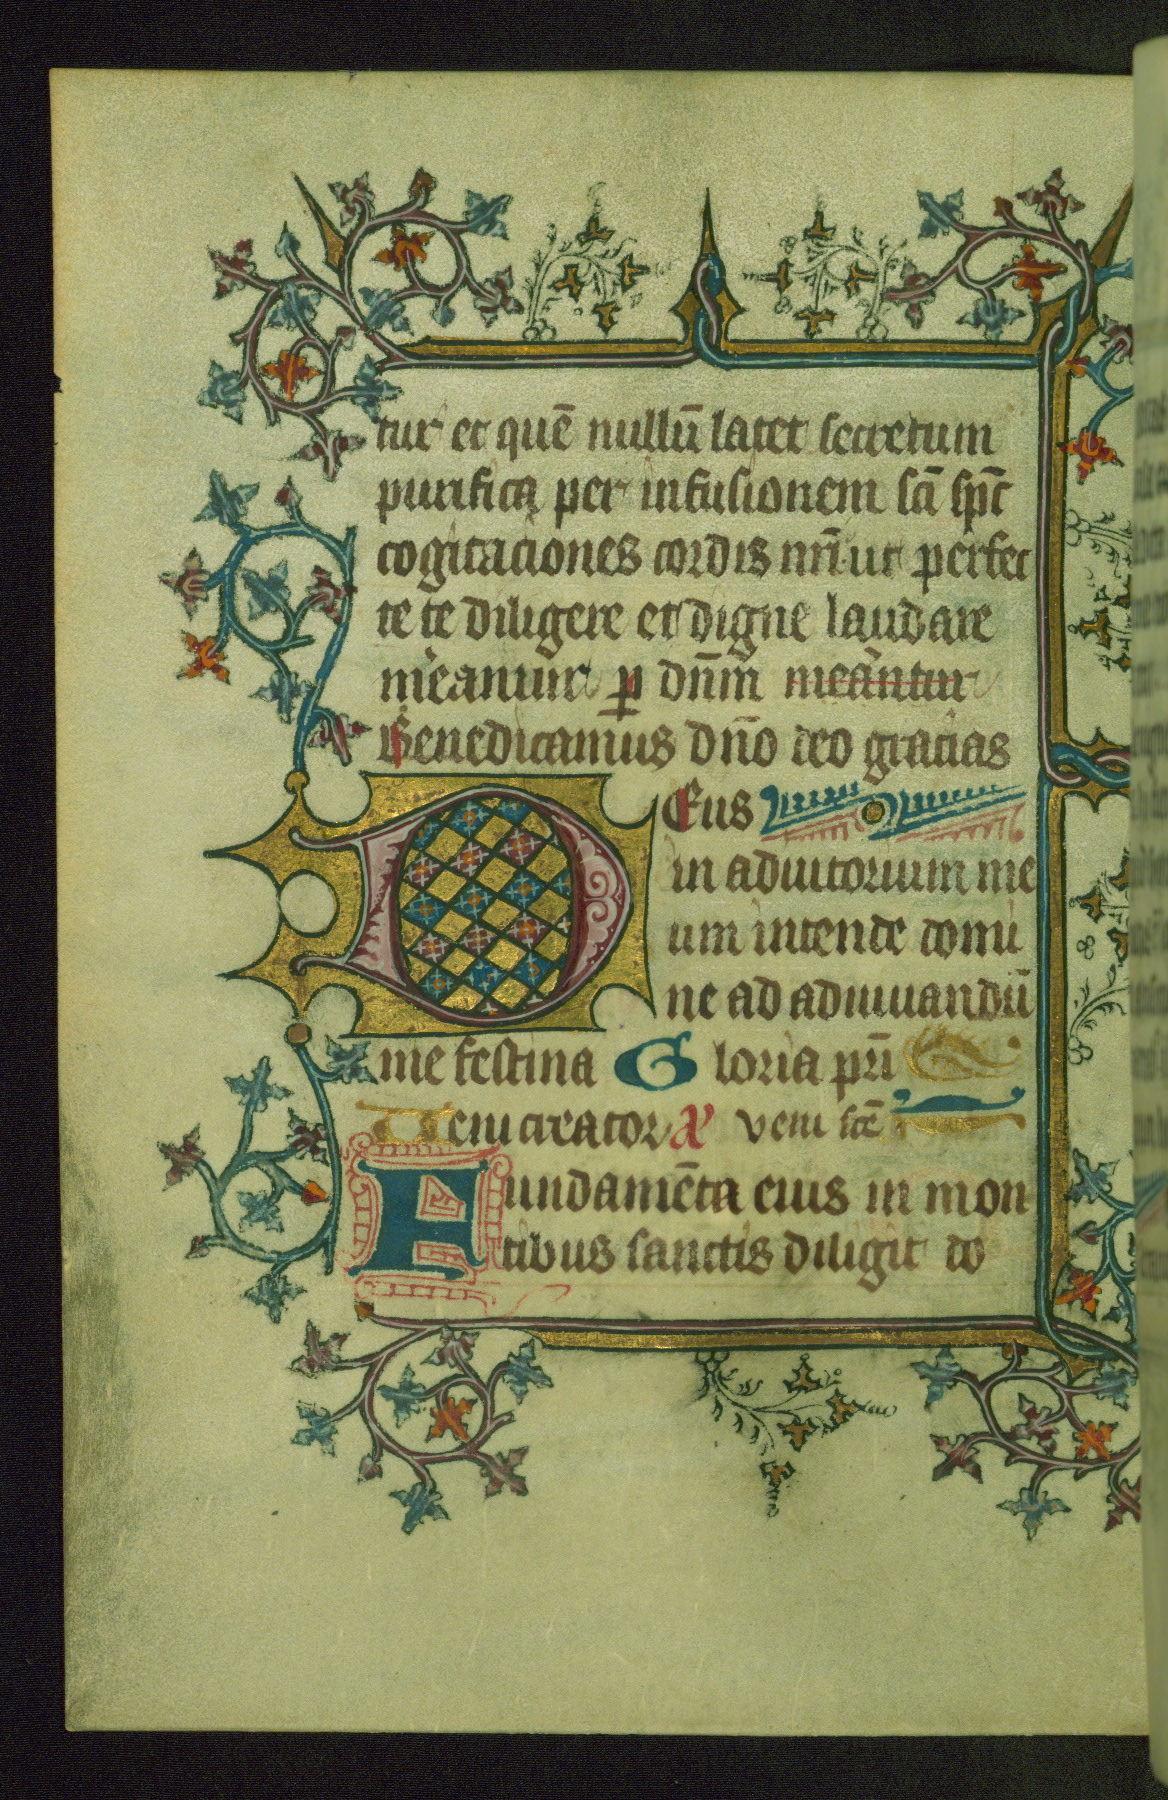 tur et quē nullū latet secretum
purifica per infusionem scī spc̄
cogitationes cordis nr̄i ut perfec
te te diligere et digne laudare
mereamur p dn̄m̄ meantur
Benedicamus dn̄o deo gracias
Deus
in adiutorium me
um intende domi
ne ad adiuuandū
me festina Gloria pr̄i
Veni creator A veni scē
Fundamēta eius in mon
tibus sanctis diligit do